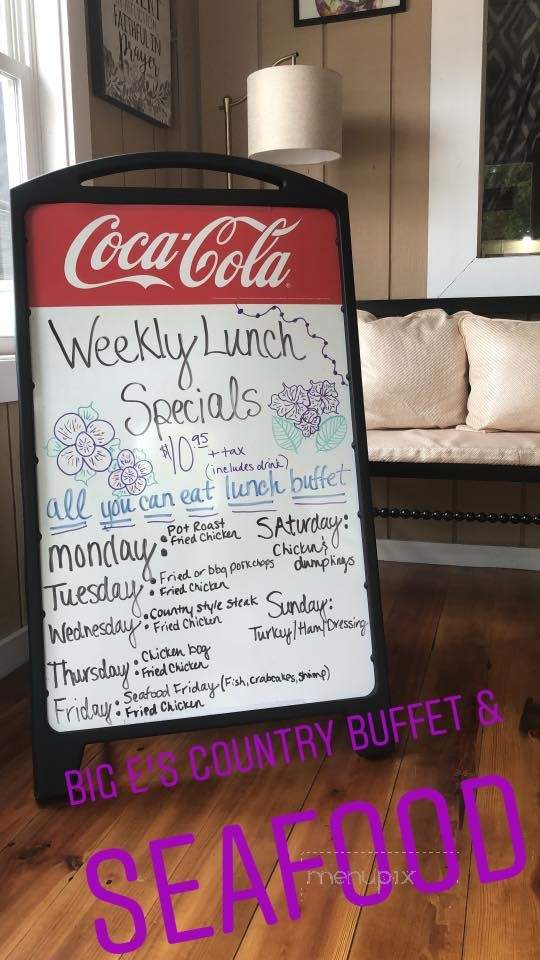 FAITHFUL IN
Prayer
Coca-Cola
Weekly Lunch
Specials
$10.95 + tax
(includes drink)
all you can eat lunch buffet
monday: • Pot Roast
• Fried Chicken
Tuesday: • Fried or bbq porkchops
• Fried Chicken
Wednesday: • Country style steak
• Fried Chicken
Thursday: • Chicken bog
• Fried Chicken
Friday: • Seafood Friday (Fish, crabcakes, shrimp)
• Fried Chicken
SAturday:
Chicken &
dumplings
Sunday:
Turkey/Ham/Dressing
BIG E'S COUNTRY BUFFET &
SEAFOOD
menupix